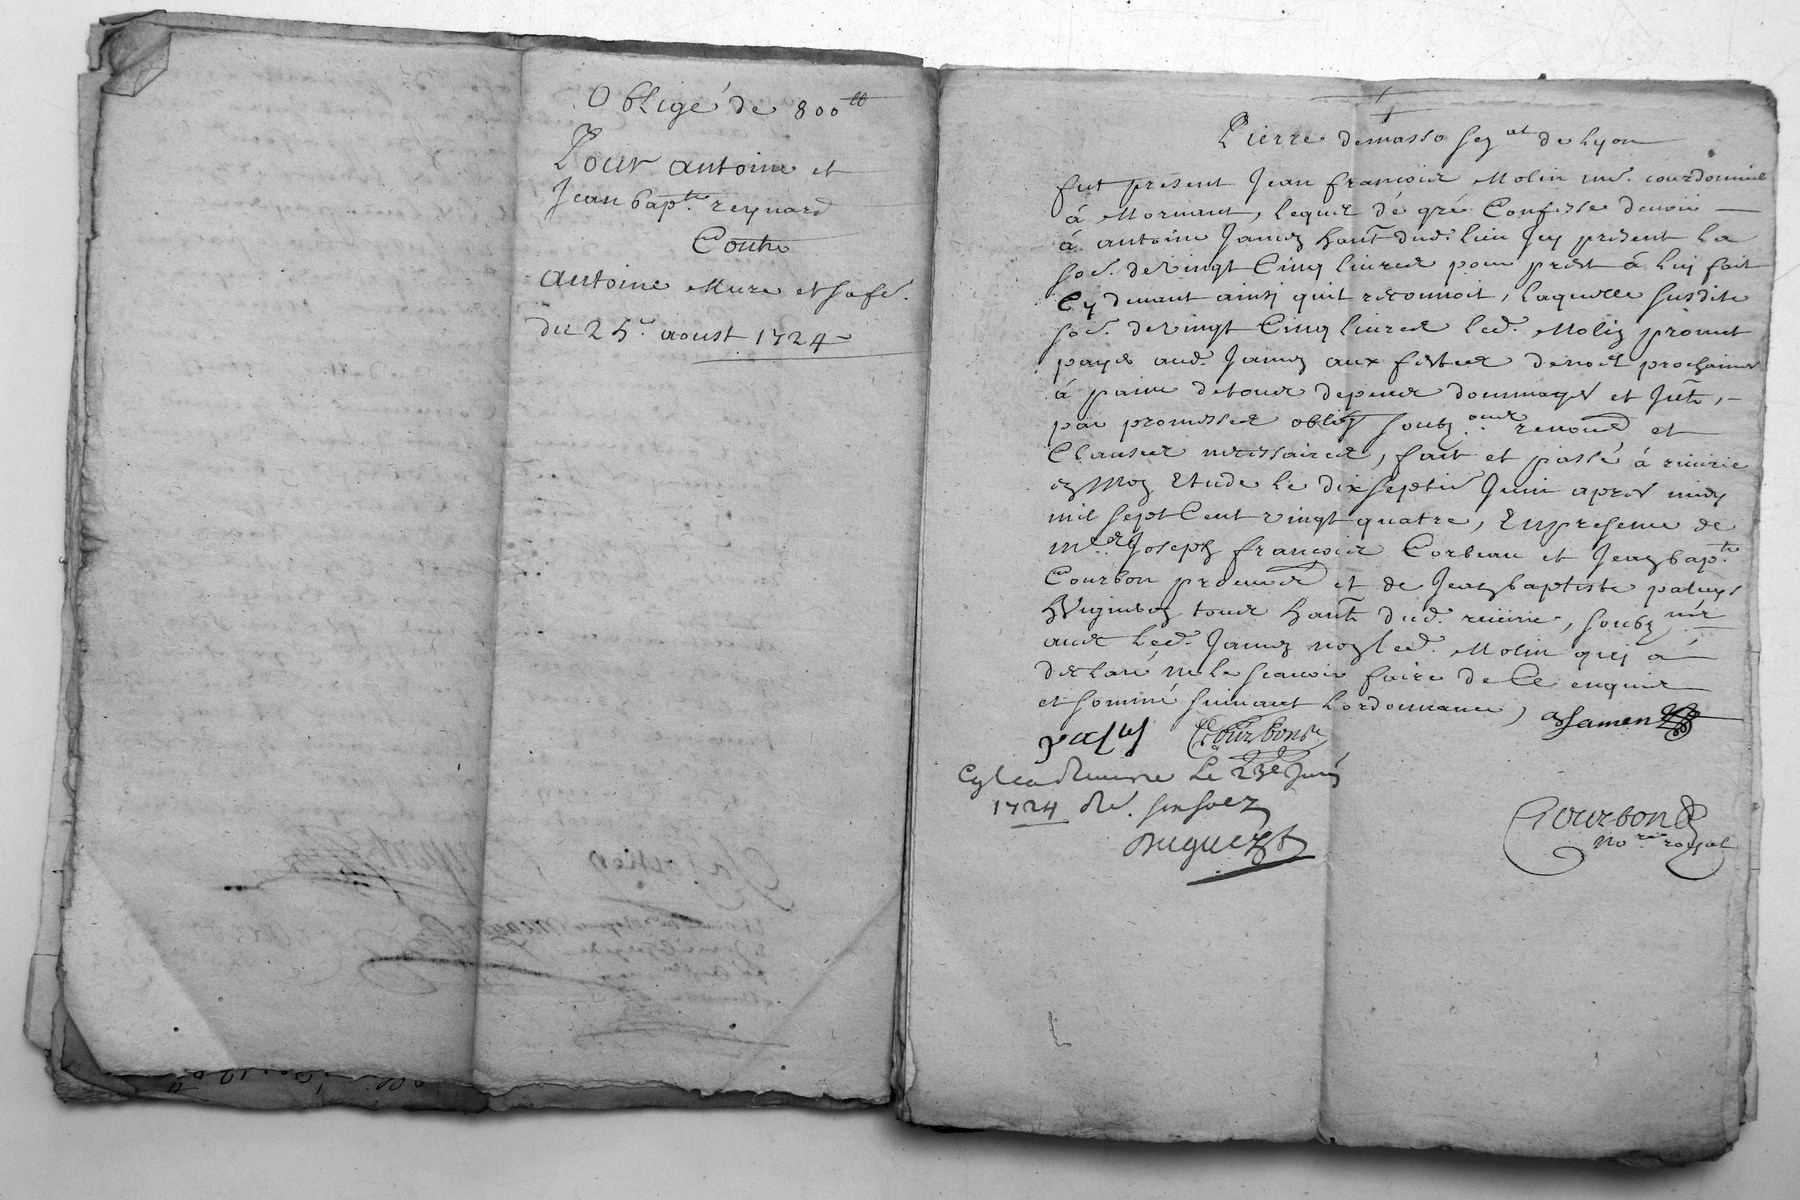 Obligé de 800ᵗᵗ
Pour antoine et
Jean bapᵗᵉ reynard
Contre
antoine Mure et sa fe.
du 25. aoust 1724
Pierre demasso seg.ᵃˡ de Lyon
fut présent Jean francois Molin md. courdonnié
á Mornant, lequel de gré Confesse devoir
á antoine Jamen hant dud. lieu Icy présent la
so.e de vingt Cinq livres pour prêt á luy fait
Cy devant ainsi quil reconnoit, laquelle susdite
so.e de vingt Cinq livres led. Molin promet
payer aud. Jamen aux festes de noel prochaines
á paine de tous depens dommages et Jntᵗˢ,
par promesses oblig soubz. ons renond et
Clauses necessaires, fait et passé á riverie
en Mon Etude le dix septie Juin apres midy
mil sept Cent vingt quatre, En presence de
mᵉˢ Joseph francois Corbeau et Jean bapᵗᵉ
Courbon et de Jean baptiste
tous hant dud. riverie, soubz nés
avec led. Jamen non led. Molin qui á
declaré ne le scavoir faire de Ce enquis
et sommé suivant lordonnance,
a Jamen
Courbon
le 23e Juin
1724
Courbon
noʳᵉ royal